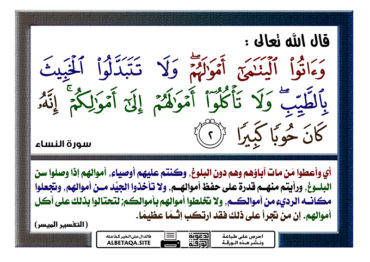 قال الله تعالى :
وَءَاتُوا۟ ٱلْيَتَـٰمَىٰٓ أَمْوَٰلَهُمْ ۖ وَلَا تَتَبَدَّلُوا۟ ٱلْخَبِيثَ
بِٱلطَّيِّبِ ۖ وَلَا تَأْكُلُوٓا۟ أَمْوَٰلَهُمْ إِلَىٰٓ أَمْوَٰلِكُمْ ۚ إِنَّهُۥ
كَانَ حُوبًا كَبِيرًا ٢
سورة النساء
أي وأعطوا مَن مات آباؤهم وهم دون البلوغ، وكنتم عليهم أوصياء، أموالهم إذا وصلوا سن
البلوغ، ورأيتم منهم قدرة على حفظ أموالهم، ولا تأخذوا الجيّد من أموالهم، وتجعلوا
مكانه الرديء من أموالكم، ولا تخلطوا أموالهم بأموالكم؛ لتحتالوا بذلك على أكل
أموالهم. إن من تجرأ على ذلك فقد ارتكب إثمًا عظيمًا.
( التفسير الميسر )
احرص على طباعة
ونشر هذه الورقة
ALBETAQA.SITE